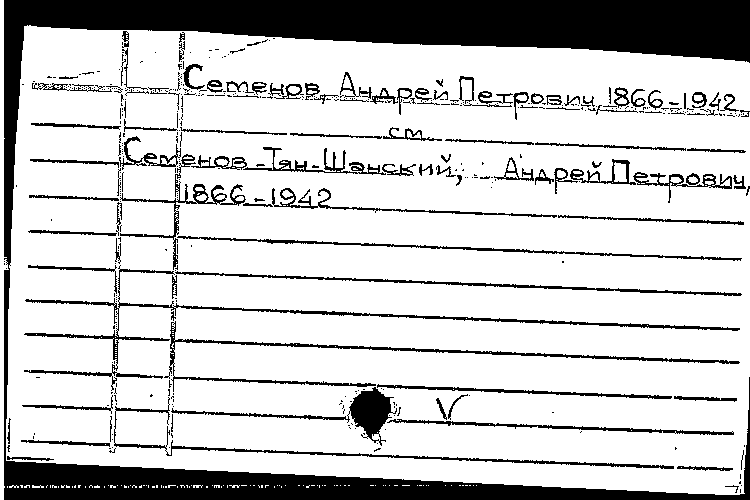 Семенов, Андрей Петрович, 1866-1942
см.
Семенов-Тян-Шанский, Андрей Петрович,
1866-1942
V